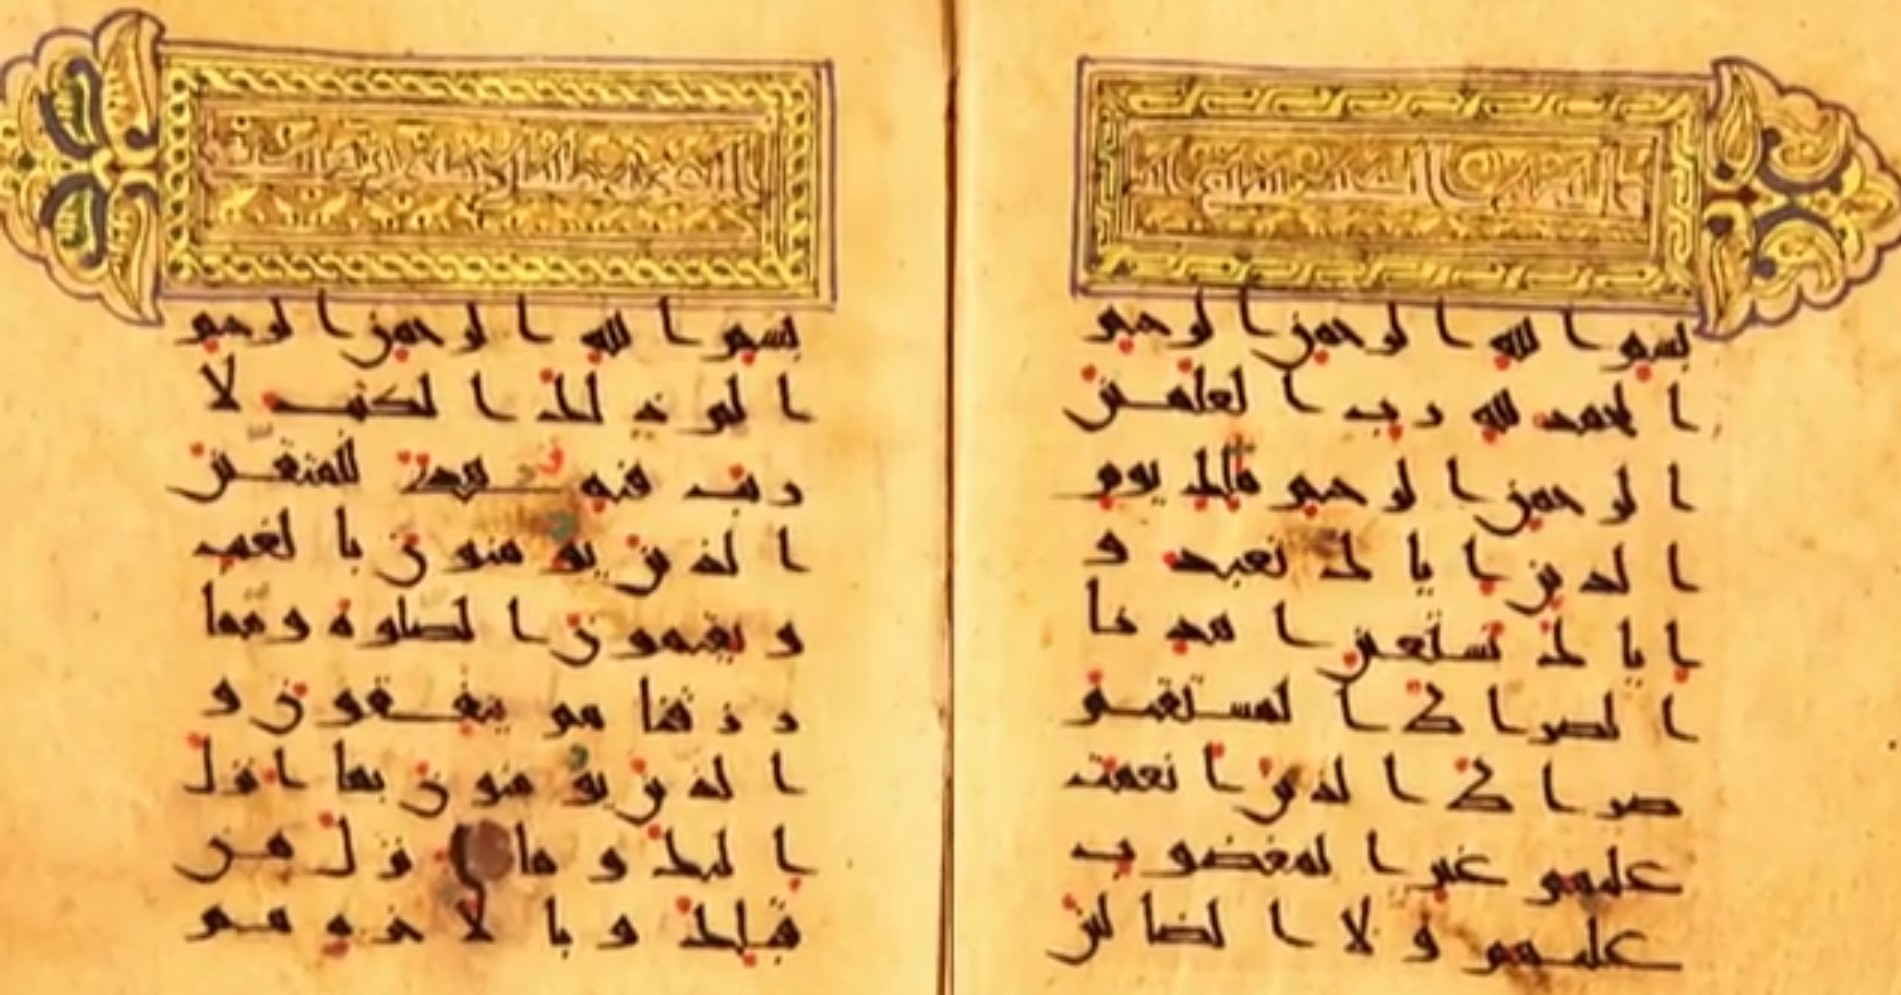 بسم الله الرحمن الرحيم
الحمد لله رب العلمين
الرحمن الرحيم ملك يوم
الدين اياك نعبد و
اياك نستعين اهدنا
الصراط المستقيم
صراط الذين انعمت
عليهم غير المغضوب
عليهم ولا الضالين
بسم الله الرحمن الرحيم
الم ذلك الكتب لا
ريب فيه هدى للمتقين
الذين يومنون بالغيب
و يقيمون الصلوة ومما
رزقنهم ينفقون و
الذين يومنون بما انزل
اليك وما انزل من
قبلك وبالاخرة هم